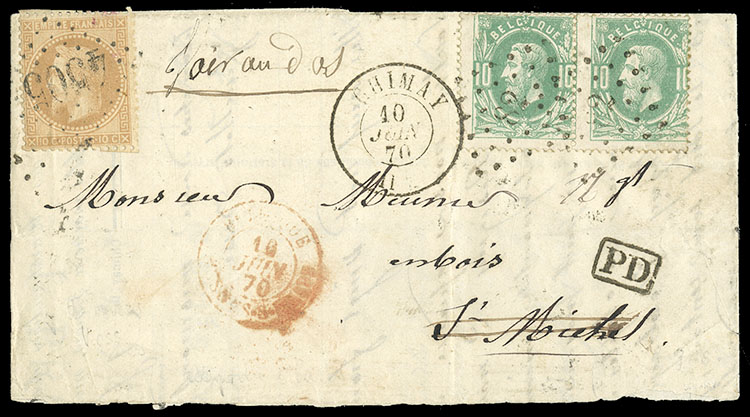 EMPIRE FRANÇAIS
10 C. POSTES 10 C.
4505
Voir au dos
CHIMAY
10
JUIN
70
BELGIQUE
10 10
BELGIQUE
10 10
Monsieur Meunier
10
JUIN
70
en bois
PD
St Michel